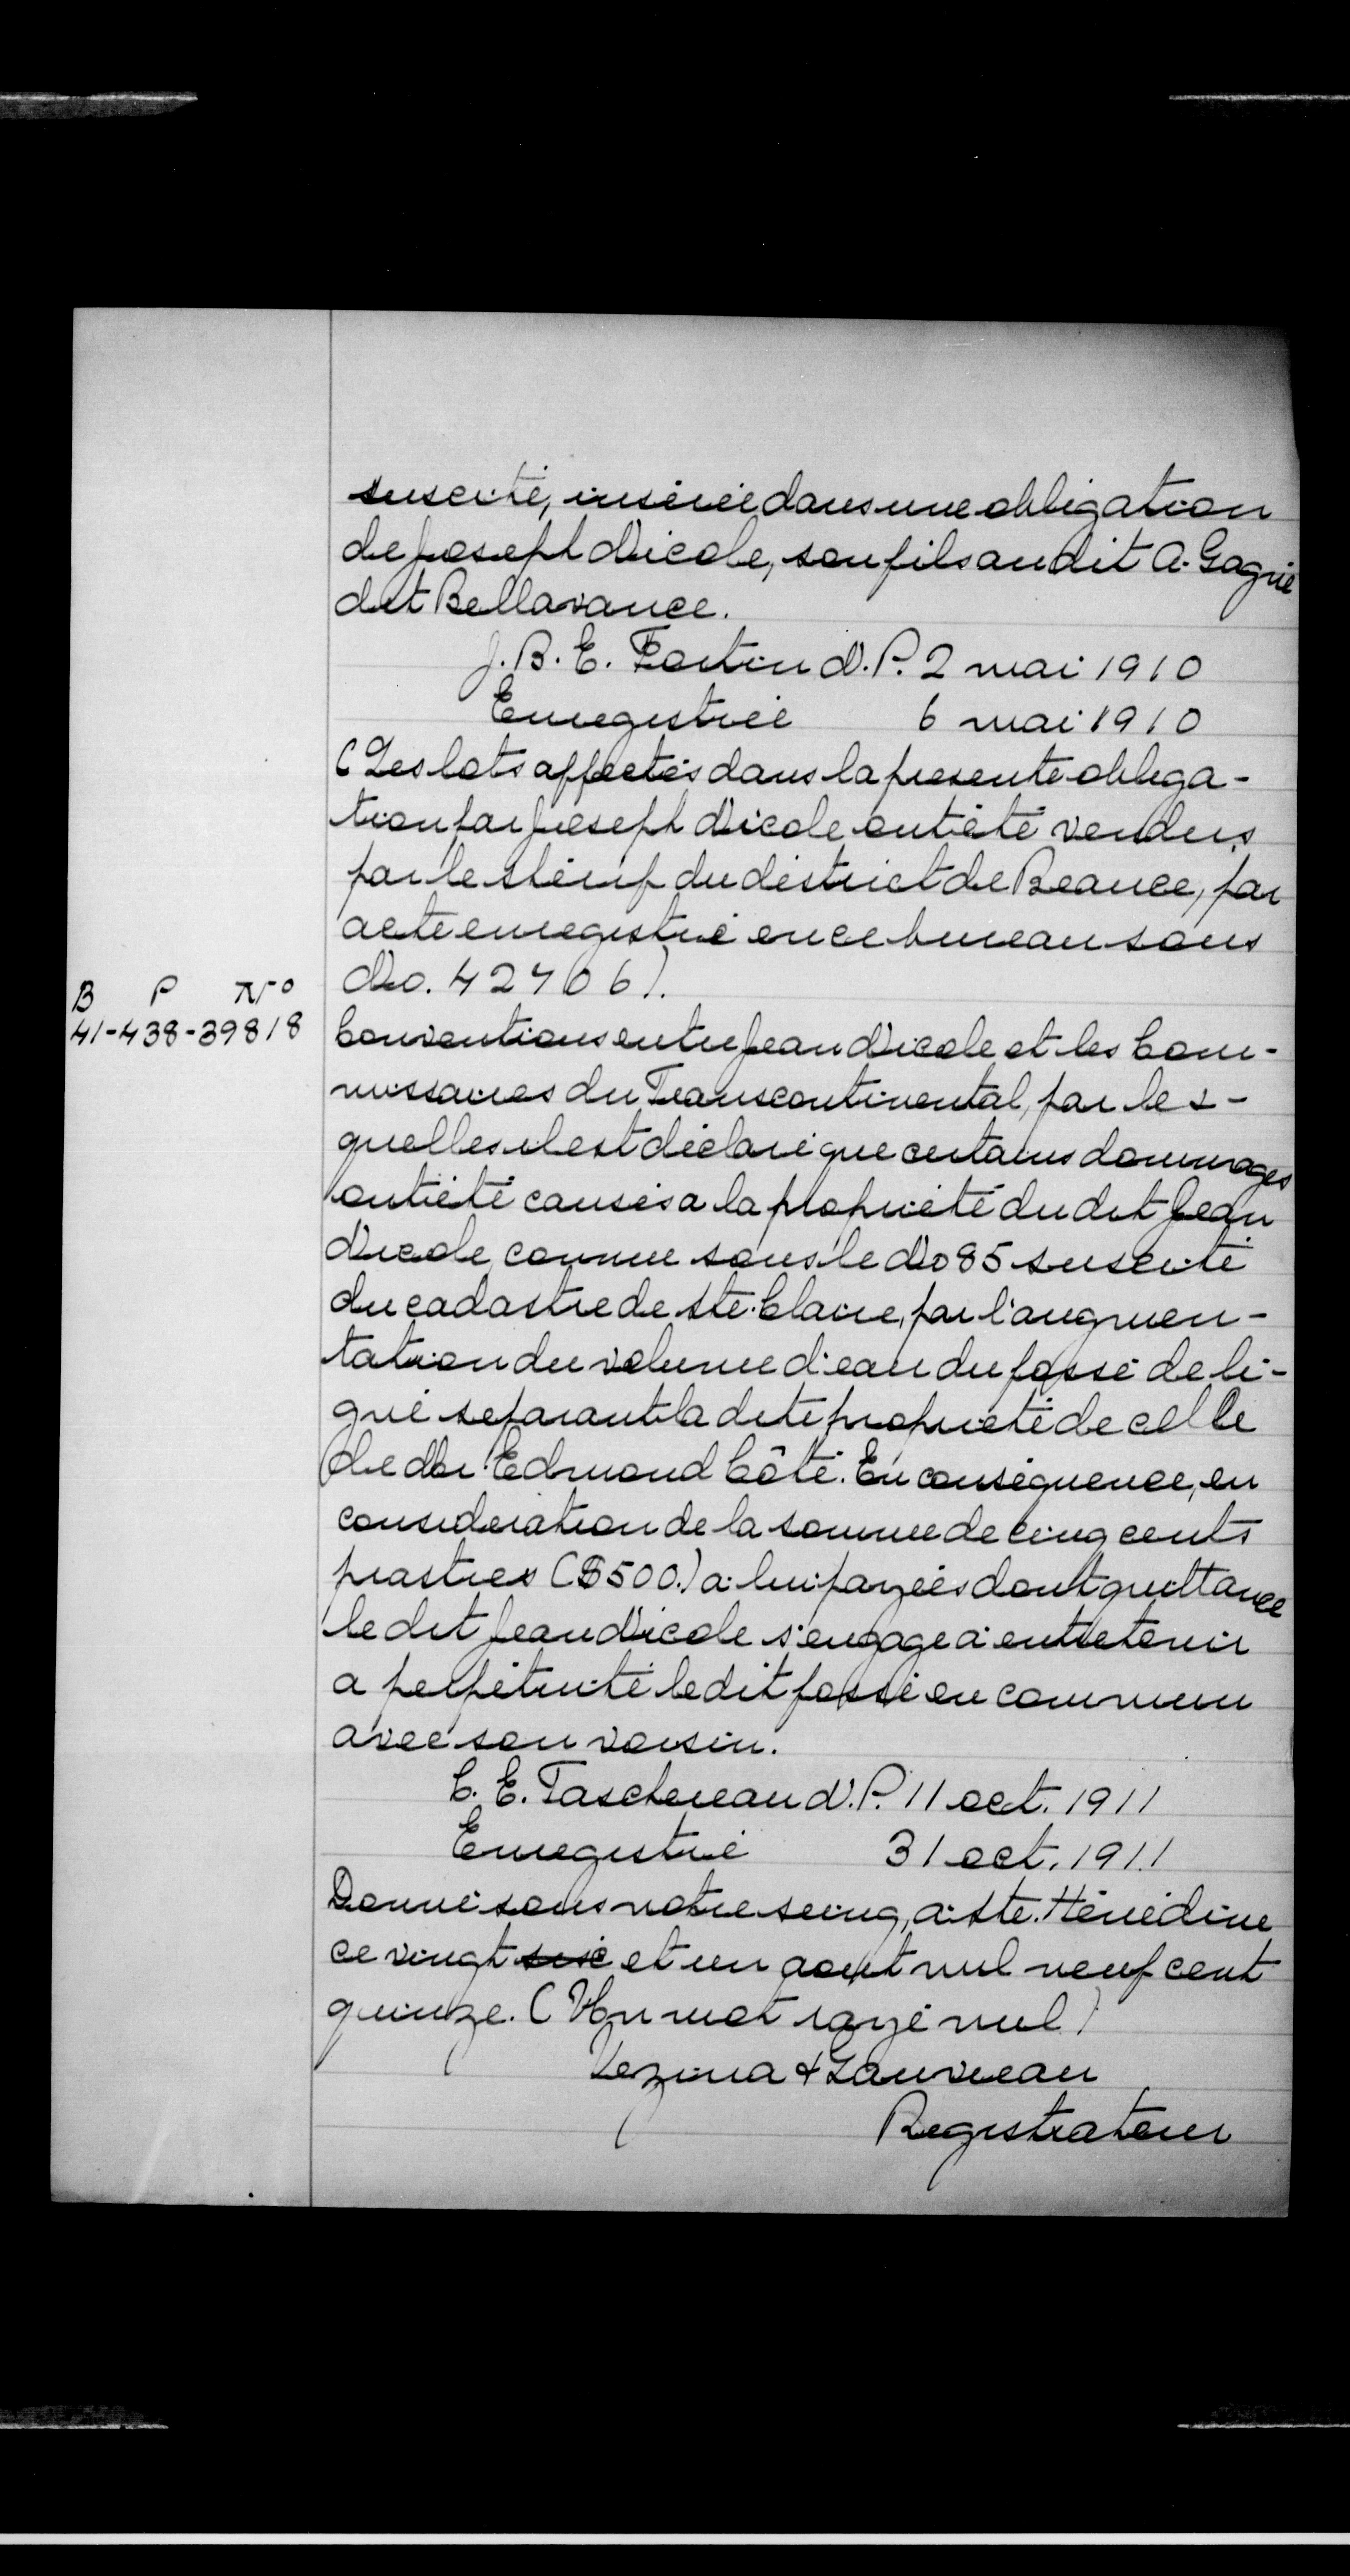 suscité, insérée dans une obligation
de Joseph Nicole, son fils au dit A. Gagné
dit Bellavance.
J. B. E. Fortin N. P. 2 mai 1910
Enregistrée 6 mai 1910
(Les lots affectés dans la présente obliga-
tion par Joseph Nicole ont été vendus
par le shérif du district de Beauce, par
acte enregistré en ce bureau sous
No. 42706).
B P No
41-438-39818
Conventions entre Jean Nicole et les Com-
missaires du Transcontinental, par les-
quelles il est déclaré que certains dommages
ont été causés a la propriété du dit Jean
Nicole, connue sous le No 85 suscité
du cadastre de Ste. Claire, par l'augmen-
tation du volume d'eau du fossé de li-
gne séparant la dite propriété de celle
de Mr. Edmond Côté. En conséquence, en
considération de la somme de cinq cents
piastres ($500.) à lui payées dont quittance
le dit Jean Nicole s'engage à entretenir
a perpétuité le dit fossé en commun
avec son voisin.
C. E. Taschereau N. P. 11 oct. 1911
Enregistré 31 oct. 1911
Donné sous notre seing, à Ste. Hénédine
ce vingt six et un aout mil neuf cent
quinze. (Un mot rayé nul)
Vezina & Gauvreau
Registrateur